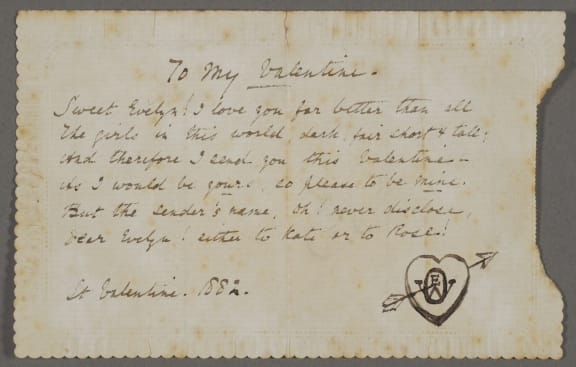 To My Valentine.
Sweet Evelyn! I love you far better than all
The girls in this world dark, fair short & tall;
And therefore I send you this Valentine -
As I would be yours, so please to be mine.
But the sender's name, Oh! never disclose,
Dear Evelyn! either to Kate or to Rose!
St Valentine. 1882.